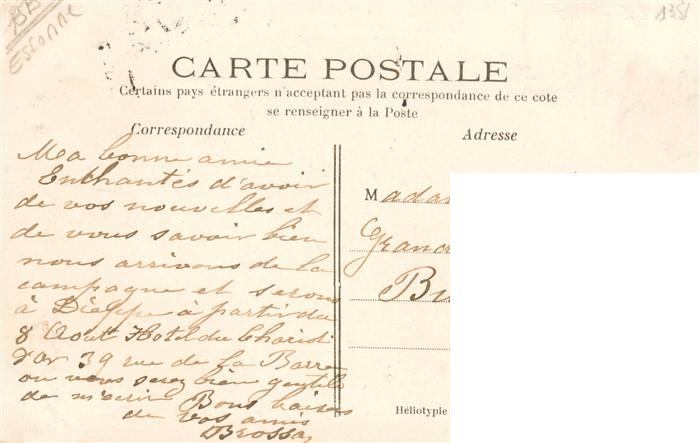 Essonne
CARTE POSTALE
Certains pays étrangers n'acceptant pas la correspondance de ce cote
se renseigner à la Poste
Correspondance
Adresse
Ma bonne amie
Enchantés d'avoir
de vos nouvelles et
de vous savoir bien
nous arrivons de la
campagne et serons
à Dieppe à partir du
8 Août Hotel du Chariot
d'or 39 rue de la Barre
ou vous serez bien gentille
de m'ecrire Bons baisers
de vos amis
Madam
Héliotypie